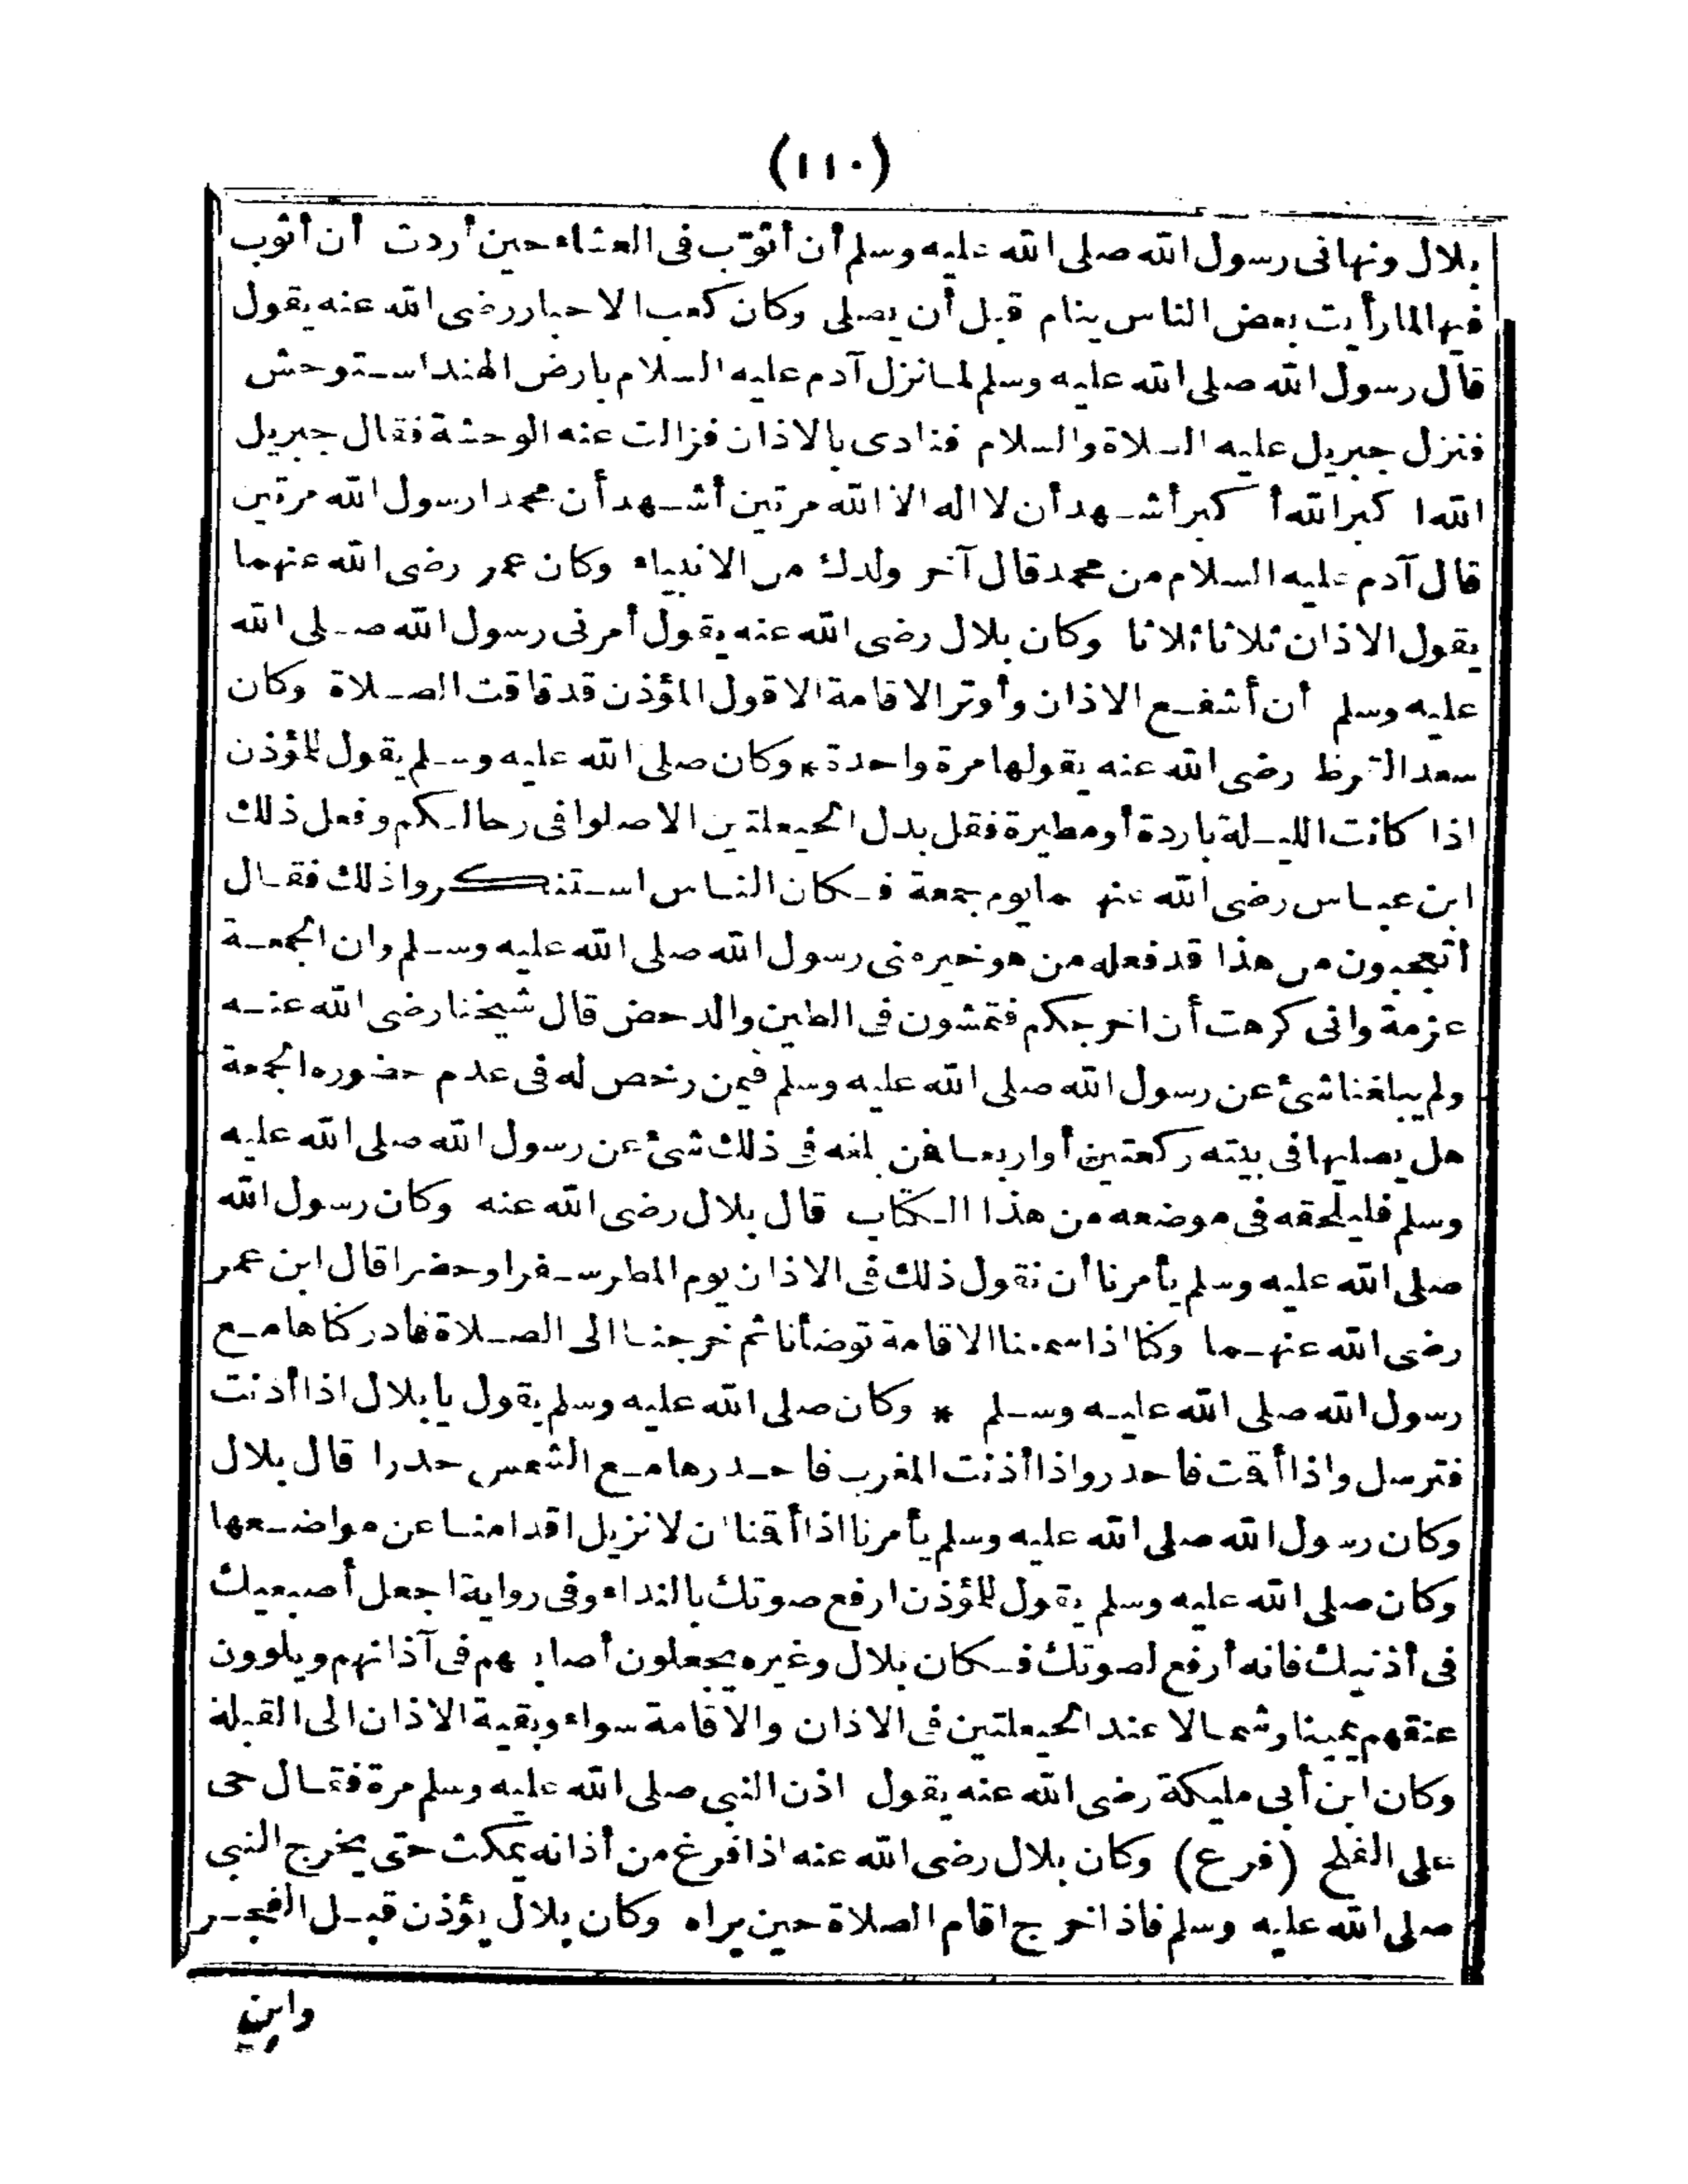 (١١٠)
بلال ونهانى رسول الله صلى الله عليه وسلم أن أثوّب فى العشاء حين أردت أن أثوب
فيها لما رأيت بعض الناس ينام قبل أن يصلى وكان كعب الاحبار رضى الله عنه يقول
قال رسول الله صلى الله عليه وسلم لما نزل آدم عليه السلام بارض الهند استوحش
فنزل جبريل عليه الصلاة والسلام فنادى بالاذان فزالت عنه الوحشة فقال جبريل
الله اكبر الله أكبر أشهد أن لا اله الا الله مرتين أشهد أن محمدا رسول الله مرتين
قال آدم عليه السلام من محمد قال آخر ولدك من الانبياء وكان عمر رضى الله عنهما
يقول الاذان ثلاثا ثلاثا وكان بلال رضى الله عنه يقول أمرنى رسول الله صلى الله
عليه وسلم أن أشفع الاذان وأوتر الاقامة الا قول المؤذن قد قاقت الصلاة وكان
سعد القرظ رضى الله عنه يقولها مرة واحدة * وكان صلى الله عليه وسلم يقول للمؤذن
اذا كانت الليلة باردة أو مطيرة فقل بدل الحيعلتين الا صلوا فى رحالكم وفعل ذلك
ابن عباس رضى الله عنهما يوم جمعة فكان الناس استنكروا ذلك فقال
أتعجبون من هذا قد فعله من هو خير منى رسول الله صلى الله عليه وسلم وان الجمعة
عزمة وانى كرهت أن اخرجكم فتمشون فى الطين والدحض قال شيخنا رضى الله عنه
ولم يبلغنا شئ عن رسول الله صلى الله عليه وسلم فيمن رخص له فى عدم حضوره الجمعة
هل يصليها فى بيته ركعتين أو اربعا فمن بلغه فى ذلك شئ عن رسول الله صلى الله عليه
وسلم فليلحقه فى موضعه من هذا الكتاب قال بلال رضى الله عنه وكان رسول الله
صلى الله عليه وسلم يأمرنا أن نقول ذلك فى الاذان يوم المطر سفرا وحضرا قال ابن عمر
رضى الله عنهما وكنا اذا سمعنا الاقامة توضأنا ثم خرجنا الى الصلاة فادركناها مع
رسول الله صلى الله عليه وسلم * وكان صلى الله عليه وسلم يقول يا بلال اذا أذنت
فترسل واذا أقت فاحدر واذا أذنت المغرب فاحدرها مع الشمس حدرا قال بلال
وكان رسول الله صلى الله عليه وسلم يأمرنا اذا أقنا ان لا نزيل اقدامنا عن مواضعها
وكان صلى الله عليه وسلم يقول للمؤذن ارفع صوتك بالنداء وفى رواية اجعل أصبعيك
فى أذنيك فانه أرفع لصوتك فكان بلال وغيره يجعلون أصابعهم فى آذانهم ويلوون
عنقهم يمينا وشمالا عند الحيعلتين فى الاذان والاقامة سواء وبقية الاذان الى القبلة
وكان ابن أبى مليكة رضى الله عنه يقول اذن النبى صلى الله عليه وسلم مرة فقال حى
على الفلح (فرع) وكان بلال رضى الله عنه اذا فرغ من أذانه يمكث حتى يخرج النبى
صلى الله عليه وسلم فاذا خرج اقام الصلاة حين يراه وكان بلال يؤذن قبل الفجر
وابن